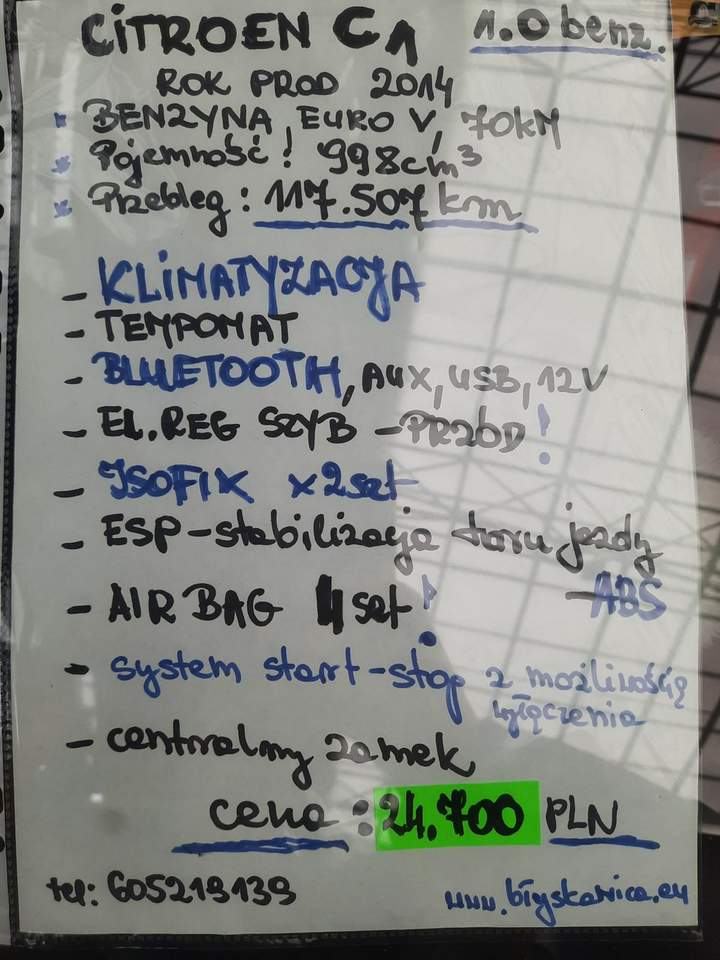 CiTROEN C1 1.0 benz.
ROK PROD 2014
* BENZYNA, EURO V, 70kM
* Pojemność! 998cm³
* Przebieg: 117.507 km
- KLiMATYZACJA
- TEMPOMAT
- BLUETOOTH, AUX, USB, 12V
- EL.REG SZYB - PRZÓD!
- ISOFIX x2set
- ESP-stabilizacja toru jazdy
- AIR BAG 4 set! - ABS
- system start-stop z możliwością
wyłączenia
- centralny zamek
cena: 24.700 PLN
tel: 605219139 www.błyskawica.eu